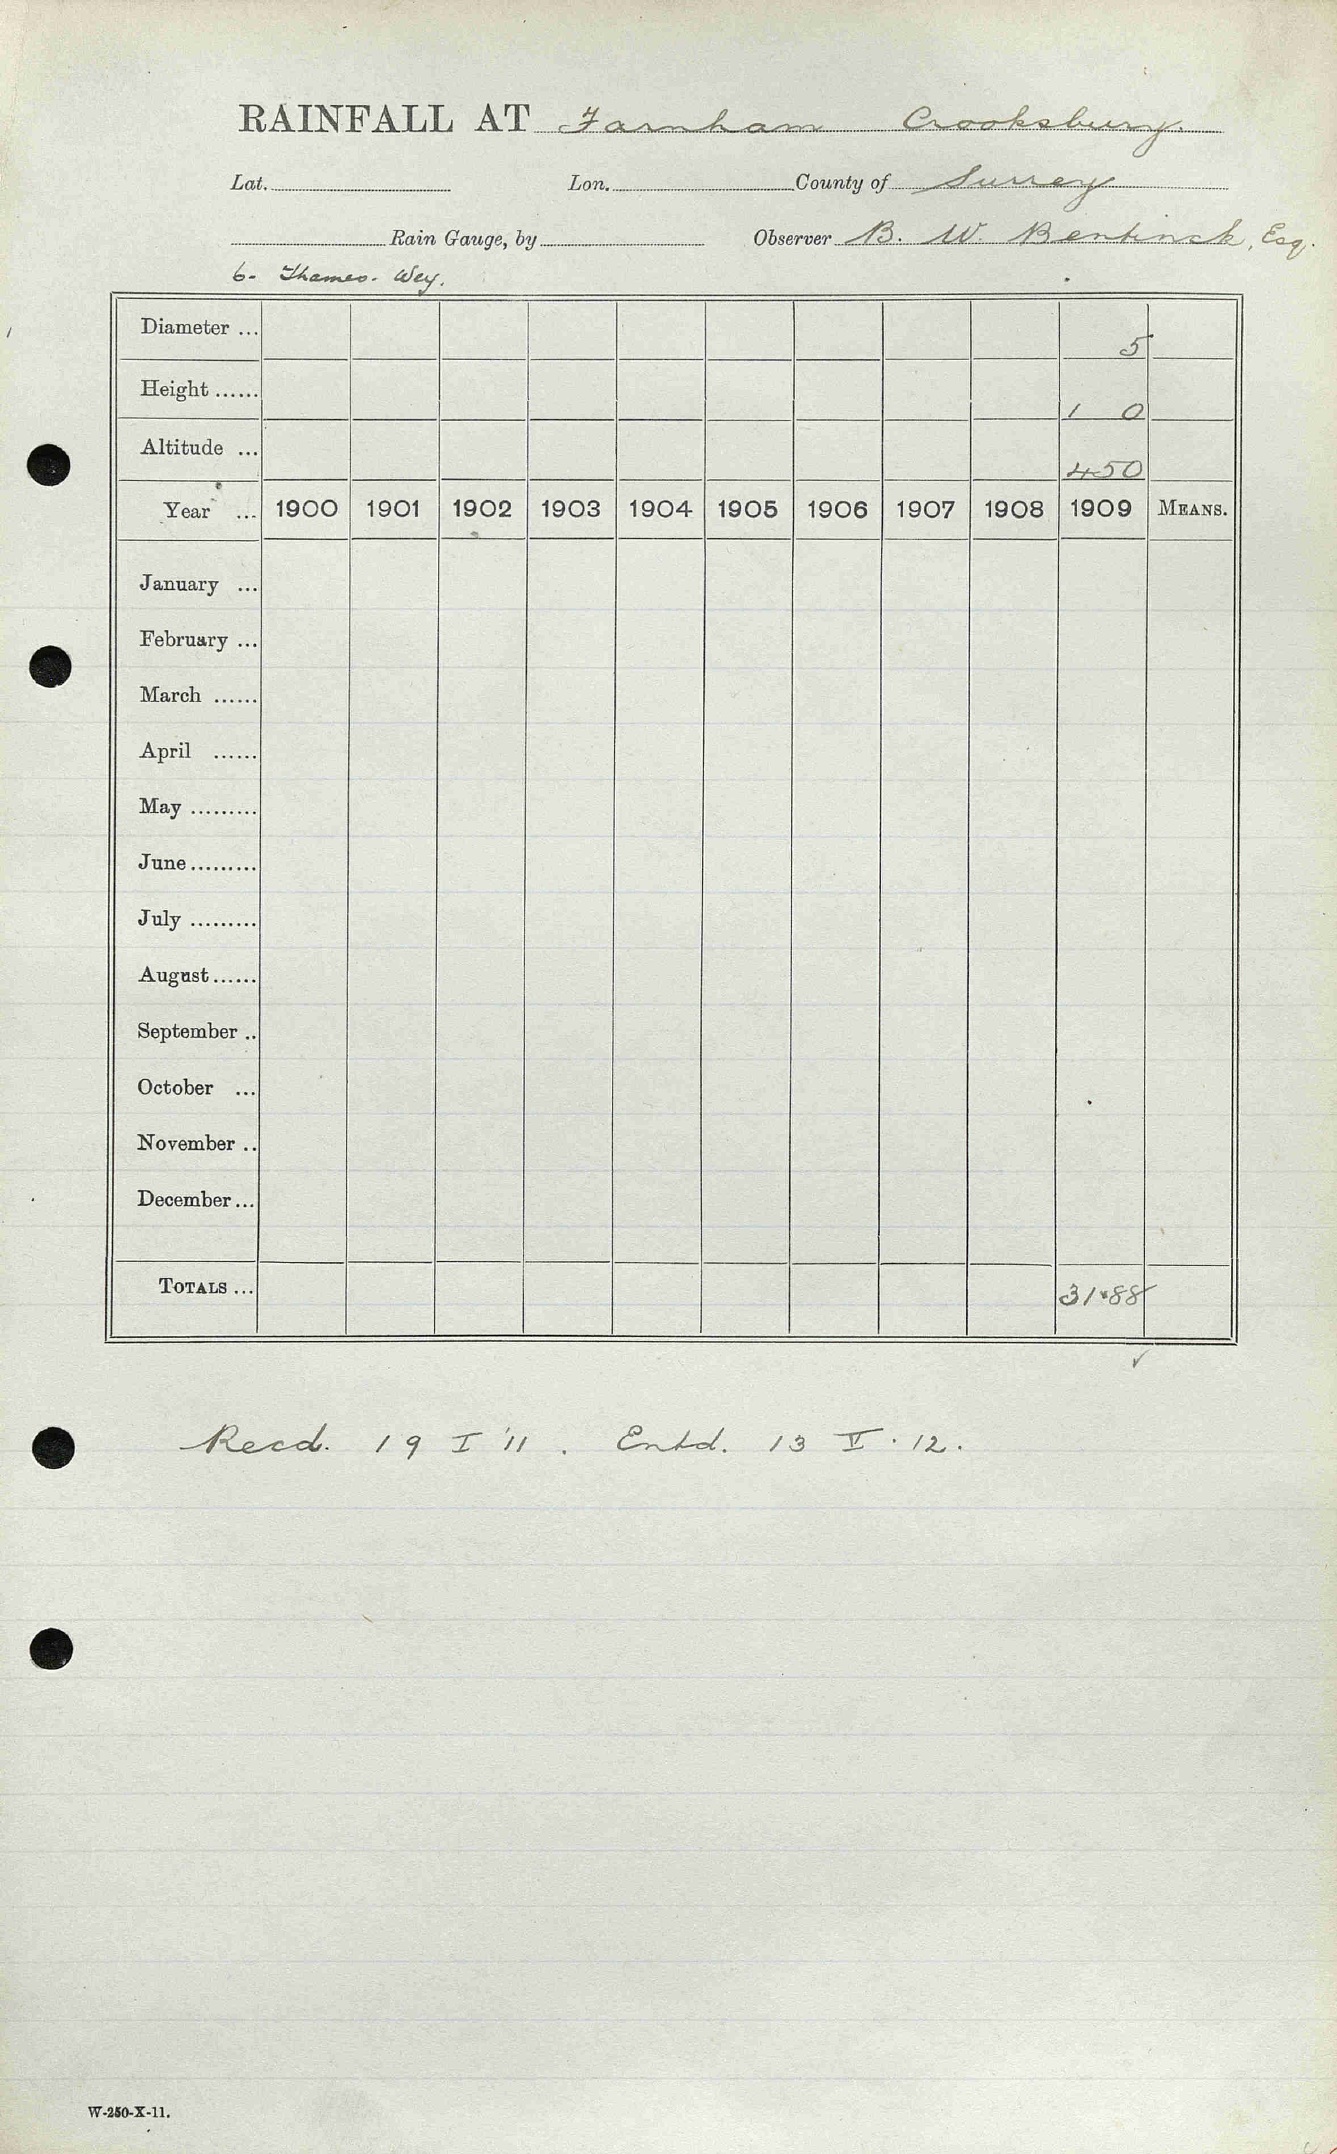 RAINFALL AT Farnham Crooksbury.
Lat. Lon. County of Surrey
Rain Gauge, by Observer B. W. Bentinck, Esq.
6- Thames. Wey.
Diameter ... 5
Height ...... 1 0
Altitude ... 450
Year ... 1900 1901 1902 1903 1904 1905 1906 1907 1908 1909 MEANS.
January ...
February ...
March ......
April ......
May .........
June .........
July .........
August ......
September ..
October ...
November ..
December ...
TOTALS ... 31.88
✓
Recd. 19 I '11 . Entd. 13 V . 12.
W-250-X-11.